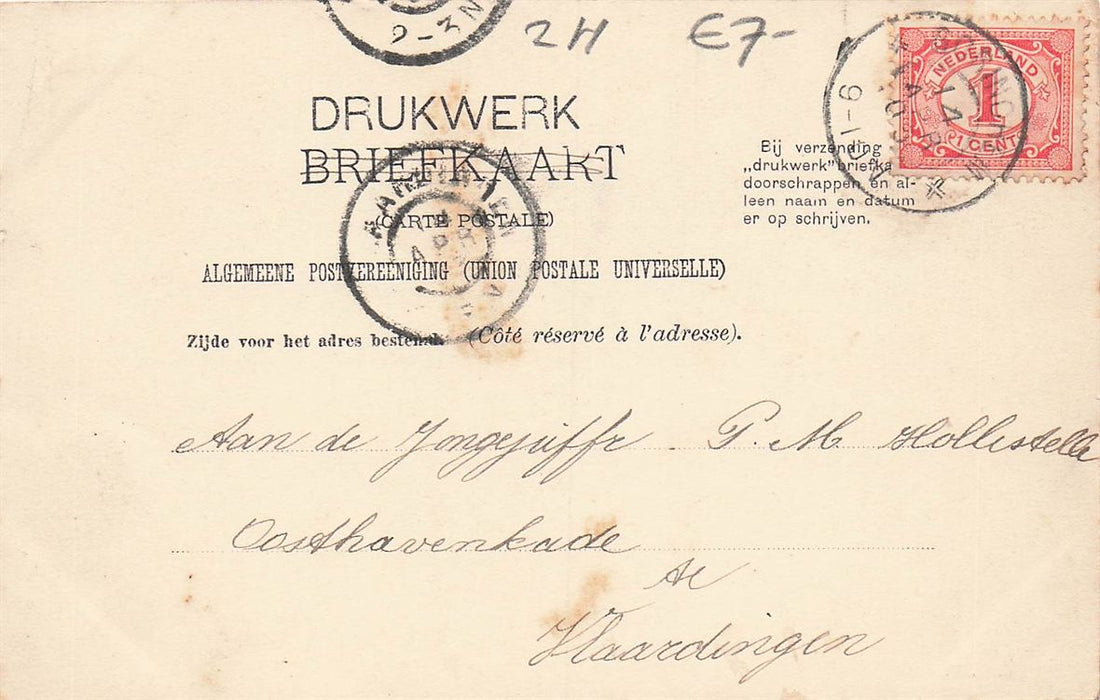 2-3N
2H €7-
NEDERLAND
1
1 CENT
14 APR
DRUKWERK
BRIEFKAART
(CARTE POSTALE)
Bij verzending
„drukwerk" briefka
doorschrappen en al-
leen naam en datum
er op schrijven.
APR
ALGEMEENE POSTVEREENIGING (UNION POSTALE UNIVERSELLE)
Zijde voor het adres bestemd. (Côté réservé à l'adresse).
Aan de Jongejuffr. P. M. Hollestelle
Oosthavenkade
te
Vlaardingen